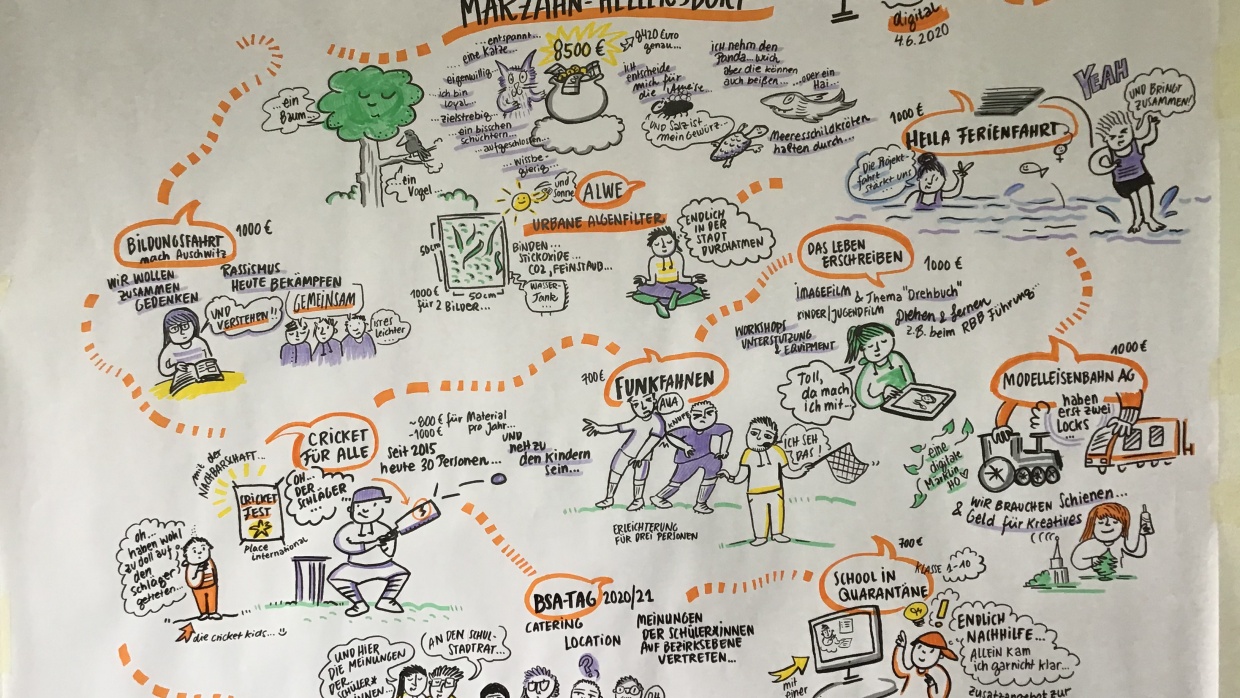 MARZAHN-HELLERSDORF
digital
4.6.2020
...ein
Baum...
...ein
Vogel...
...entspannt...
eine Katze...
eigenwillig...
...ich bin
loyal...
zielstrebig...
...ein bisschen
schüchtern...
...aufgeschlossen...
...wissbe-
gierig...
8500 €
8420 Euro
genau...
ich
entscheide
mich für
die Ameise...
und Salz ist
mein Gewürz...
ich nehm den
Panda...weich
aber die können
auch beißen...
...oder ein
Hai...
Meeresschildkröten
halten durch...
1000 €
HELLA FERIENFAHRT
Die Projekt-
fahrt
stärkt uns
YEAH
UND BRINGT
ZUSAMMEN!
BILDUNGSFAHRT
nach Auschwitz
1000 €
WIR WOLLEN
ZUSAMMEN
GEDENKEN
UND
VERSTEHEN!!
RASSISMUS
HEUTE BEKÄMPFEN
GEMEINSAM
IST ES
leichter
und
Sonne
ALWE
URBANE ALGENFILTER
50cm
50cm
1000 €
für 2 BILDER...
BINDEN...
STICKOXIDE...
CO2, FEINSTAUB...
WASSER-
Tank...
ENDLICH
IN DER
STADT
DURCHATMEN
DAS LEBEN
ERSCHREIBEN
1000 €
IMAGEFILM & Thema "Drehbuch"
KINDER/JUGENDFILM
Drehen & lernen
z.B. beim RBB Führung...
WORKSHOPS
UNTERSTÜTZUNG
& EQUIPMENT
Toll,
da mach
ich mit...
MODELLEISENBAHN AG
1000 €
haben
erst zwei
LOCKS
...
eine
digitale
Märklin
H0
WIR BRAUCHEN Schienen...
& Geld für Kreatives
700 €
FUNKFAHNEN
AUA
KNUFF
ICH SEH
DAS!
ERLEICHTERUNG
FÜR DREI PERSONEN
CRICKET
FÜR ALLE
~ 800 € für Material
-1000 € pro Jahr...
seit 2015
heute 30 Personen...
UND
neh zu
den Kindern
sein...
mit der
NACHBARSCHAFT...
CRICKET
FEST
place
international
OH...
DER
SCHLÄGER
oh...
haben wohl
zu doll auf
den
Schläger
getreten...
die cricket kids...
BSA-TAG 2020/21
CATERING
LOCATION
?
MEINUNGEN
DER SCHÜLER*INNEN
AUF BEZIRKSEBENE
VERTRETEN...
UND HIER
DIE MEINUNGEN
DER
SCHÜLER*
INNEN...
AN DEN SCHUL-
STADTRAT...
SCHOOL IN
QUARANTÄNE
700 €
KLASSE 1-10
ENDLICH
NACHHILFE...
ALLEIN kam
ich garnicht klar...
mit
einer
zusatzangebot zur